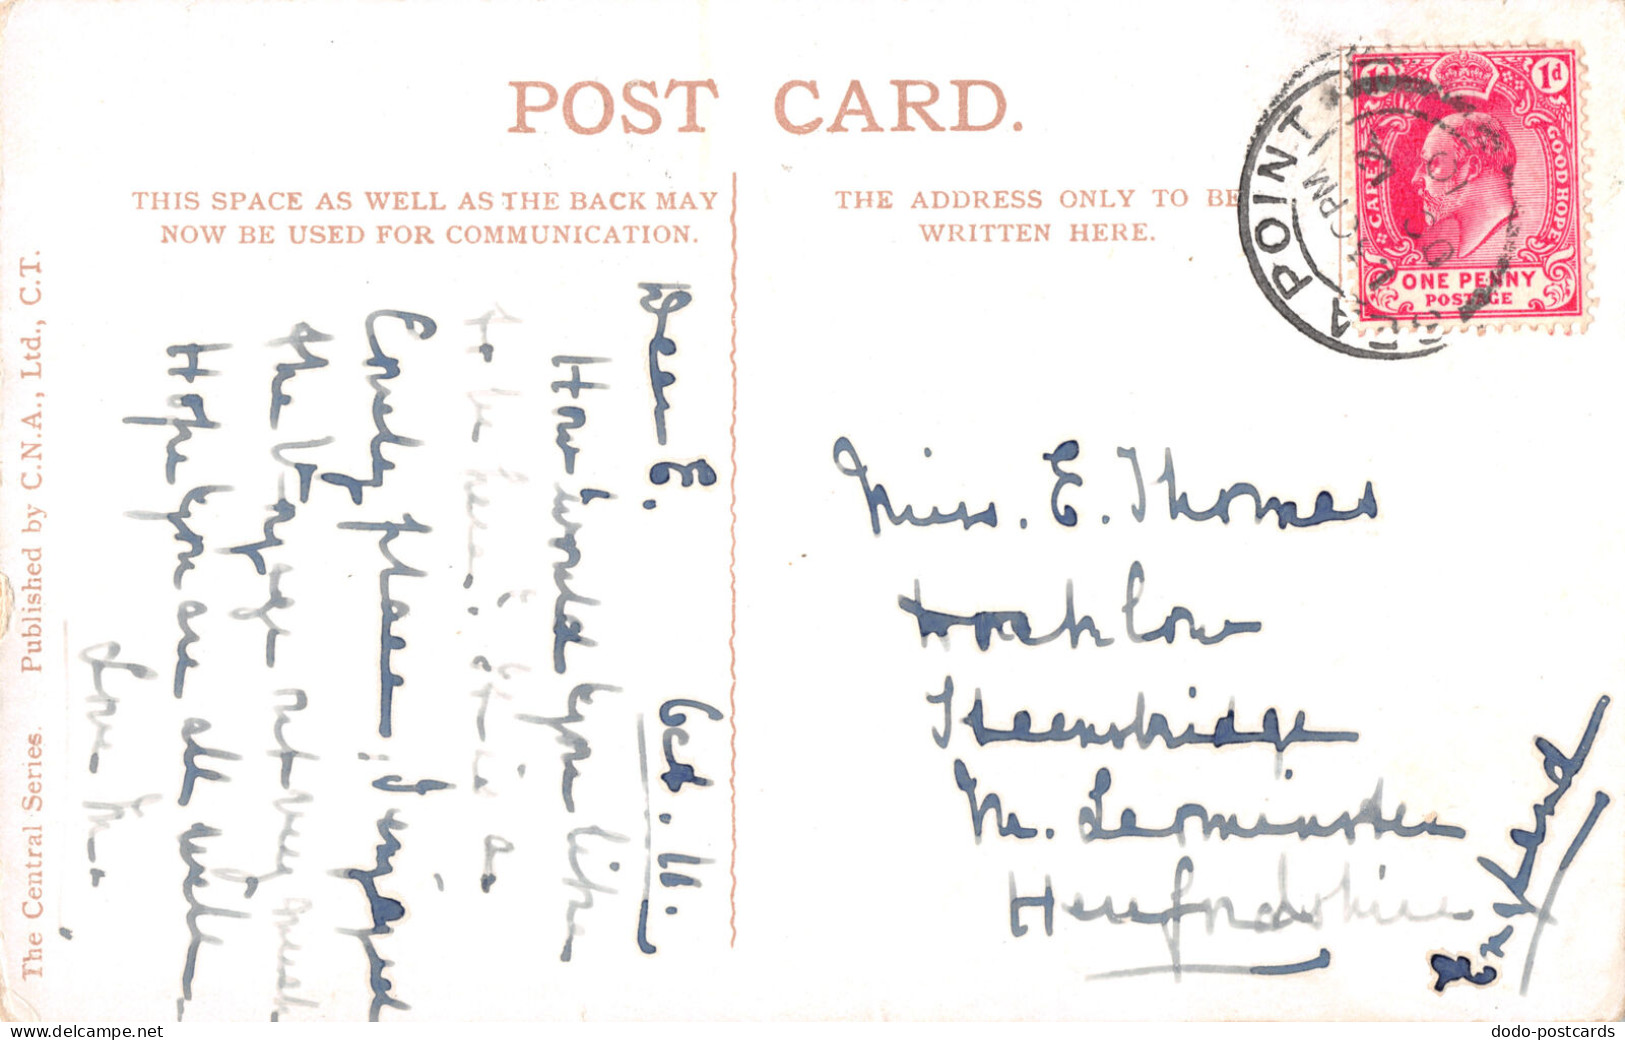 POST CARD.
THIS SPACE AS WELL AS THE BACK MAY
NOW BE USED FOR COMMUNICATION.
THE ADDRESS ONLY TO BE
WRITTEN HERE.
The Central Series. Published by C.N.A., Ltd., C.T.
Oct. 11.
Dear E.
How would you like
to be here. It is a
lovely place. I enjoyed
the Voyage not very much
Hope you are all well
Love
Miss. E. Thomas
Steensbridge
Nr. Leominster
Herefordshire
England
SEA POINT
PM
1d
1d
CAPE OF
GOOD HOPE
ONE PENNY
POSTAGE
dodo-postcards